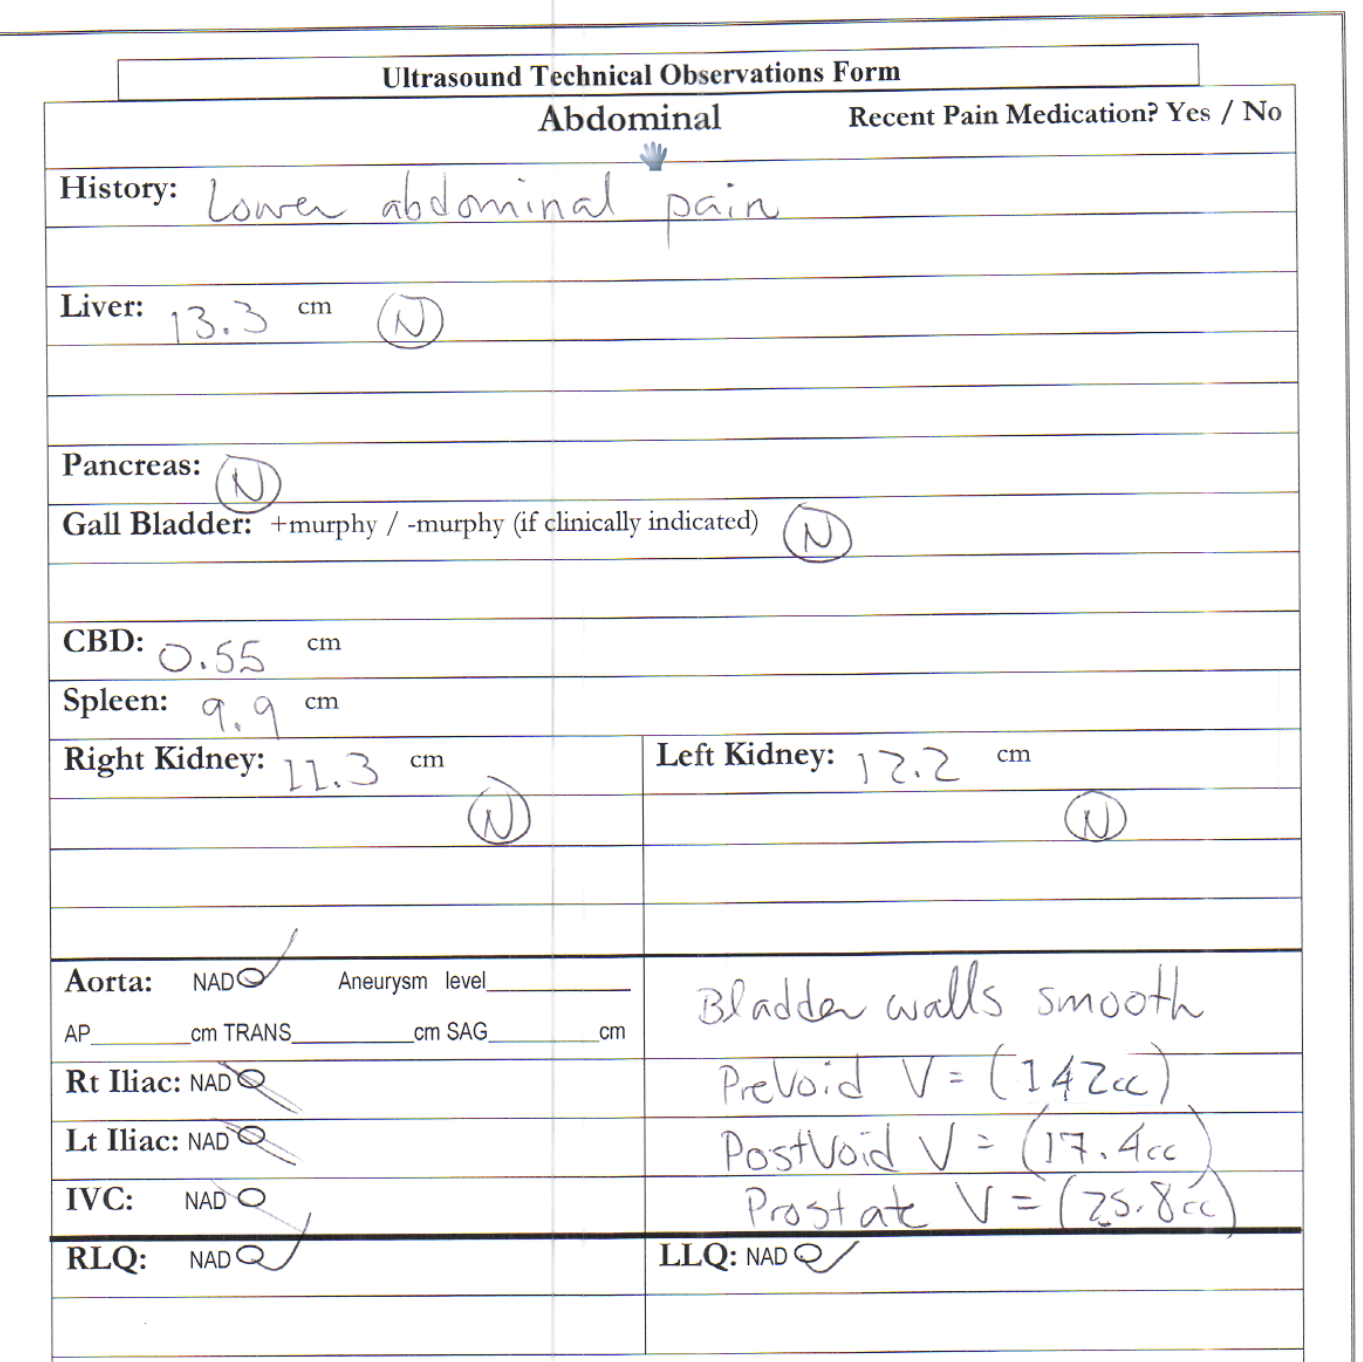 Ultrasound Technical Observations Form
Abdominal Recent Pain Medication? Yes / No
History: Lower abdominal pain
Liver: 13.3 cm N
Pancreas: N
Gall Bladder: +murphy / -murphy (if clinically indicated) N
CBD: 0.55 cm
Spleen: 9.9 cm
Right Kidney: 11.3 cm Left Kidney: 12.2 cm
N N
Aorta: NAD Aneurysm level Bladder walls smooth
AP cm TRANS cm SAG cm
Rt Iliac: NAD PreVoid V = (142cc)
Lt Iliac: NAD PostVoid V = (17.4cc)
IVC: NAD Prostate V = (25.8cc)
RLQ: NAD LLQ: NAD